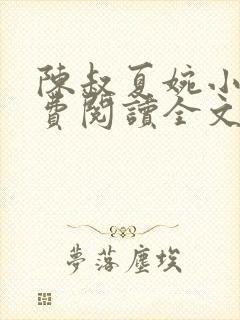 陳叔夏婉小
費閱讀全文
夢落塵埃